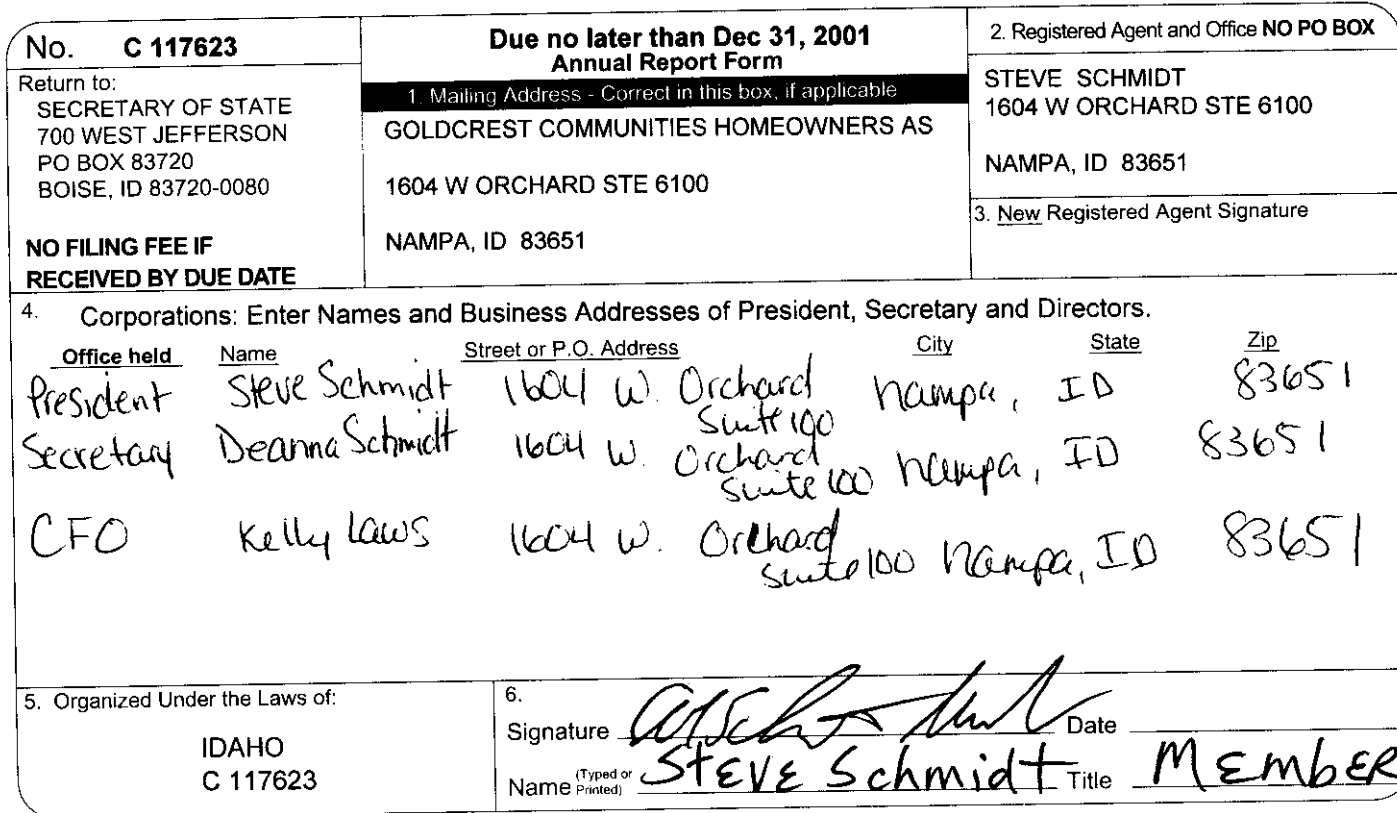 No. C 117623
Return to:
SECRETARY OF STATE
700 WEST JEFFERSON
PO BOX 83720
BOISE, ID 83720-0080
NO FILING FEE IF
RECEIVED BY DUE DATE
Due no later than Dec 31, 2001
Annual Report Form
1. Mailing Address - Correct in this box, if applicable
GOLDCREST COMMUNITIES HOMEOWNERS AS
1604 W ORCHARD STE 6100
NAMPA, ID 83651
2. Registered Agent and Office NO PO BOX
STEVE SCHMIDT
1604 W ORCHARD STE 6100
NAMPA, ID 83651
3. New Registered Agent Signature
4. Corporations: Enter Names and Business Addresses of President, Secretary and Directors.
Office held Name Street or P.O. Address City State Zip
President Steve Schmidt 1604 W. Orchard Nampa, ID 83651
Suite 100
Secretary Deanna Schmidt 1604 W. Orchard Nampa, ID 83651
Suite 100
CFO Kelly Laws 1604 W. Orchard Nampa, ID 83651
Suite 100
5. Organized Under the Laws of:
IDAHO
C 117623
6.
Signature Date
Name (Typed or Printed) STEVE Schmidt Title MEMBER